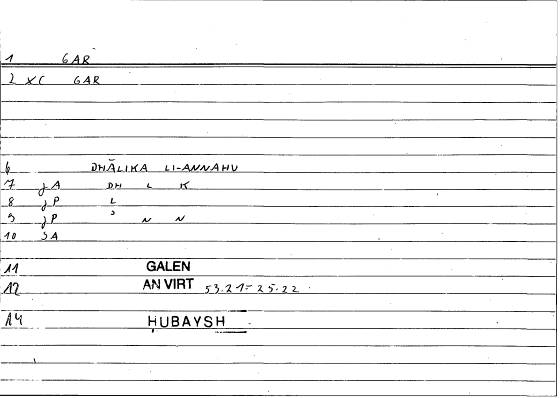 1 GAR
2 XC GAR
6 DHĀLIKA LI-ANNAHU
7 jA DH L K
8 jP L
9 jP ʾ N N
10 SA
11 GALEN
12 AN VIRT 53.21=25.22
14 ḤUBAYSH